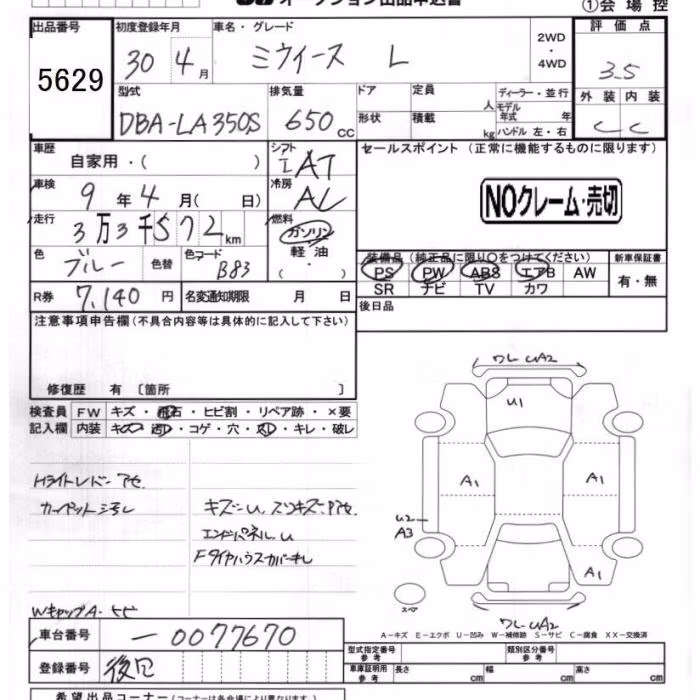 オークション出品申込書
①会場控
出品番号 5629
初度登録年月 30 4月
車名・グレード ミライース L
2WD・4WD
評価点 3.5
外装 内装
C C
型式 DBA-LA350S
排気量 650 cc
ドア
形状
定員 人
積載 kg
ディーラー・並行
モデル年式 年
ハンドル 左・右
車歴 自家用・( )
シフト I AT
車検 9年4月( 日)
冷房 AC
走行 3万3千572km
燃料 ガソリン 軽油 ( ・ )
色 ブルー 色替
色コード B83
R券 7,140円
名変通知期限 月 日
セールスポイント (正常に機能するものに限ります)
NOクレーム・売切
装備品(純正品に限り○をつけてください)
PS PW ABS エアB AW
SR ナビ TV カワ
新車保証書
有・無
後日品
注意事項申告欄(不具合内容等は具体的に記入して下さい)
修復歴 有〔箇所 〕
検査員記入欄
FW キズ・飛石・ヒビ割・リペア跡・×要
内装 キズ・汚レ・コゲ・穴・スレ・キレ・破レ
Hライトレンズ アセ
カーペット汚レ
キズ・U
エンドパネル U
Fタイヤハウスカバーキレ
WキャップA
ワレ UA2
U1
A1
A1
U2
A3
A1
スペア
ワレ UA2
A-キズ E-エクボ U-凹み W-補修跡 S-サビ C-腐食 XX-交換済
車台番号 -0077670
登録番号 後日
型式指定番号 参考
類別区分番号 参考
車庫証明用 参考
長さ cm 幅 cm 高さ cm
希望出品コーナー(コーナーは各会場により異なります)